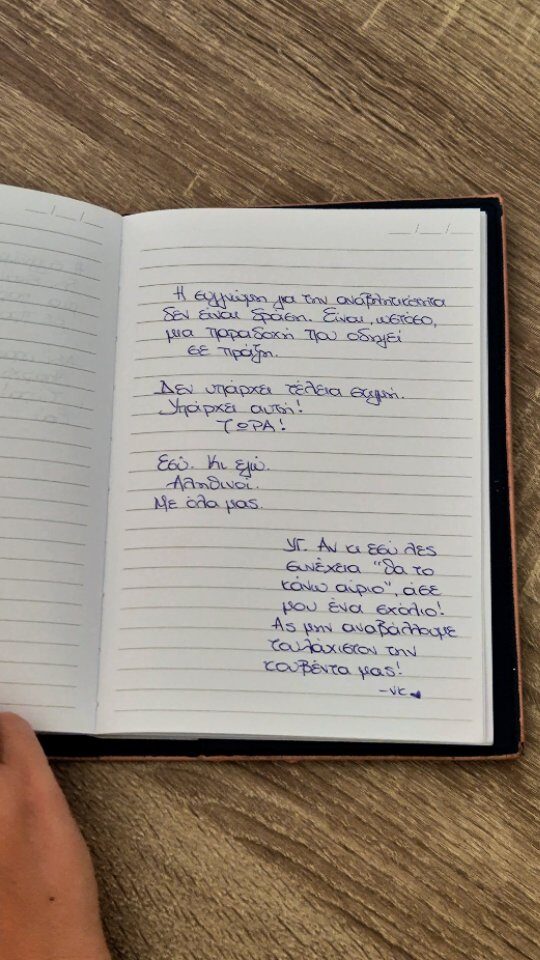 __/__/__
Η συγγνώμη για την αναβλητικότητα
δεν είναι δράση. Είναι, ωστόσο,
μια παραδοχή που οδηγεί
σε πράξη.
Δεν υπάρχει τέλεια στιγμή.
Υπάρχει αυτή!
ΤΩΡΑ!
Εσύ. Κι εγώ.
Αληθινοί.
Με όλα μας.
ΥΓ. Αν κι εσύ λες
συνέχεια "θα το
κάνω αύριο", άσε
μου ένα σχόλιο!
Ας μην αναβάλλουμε
τουλάχιστον την
κουβέντα μας!
-νκ ♥